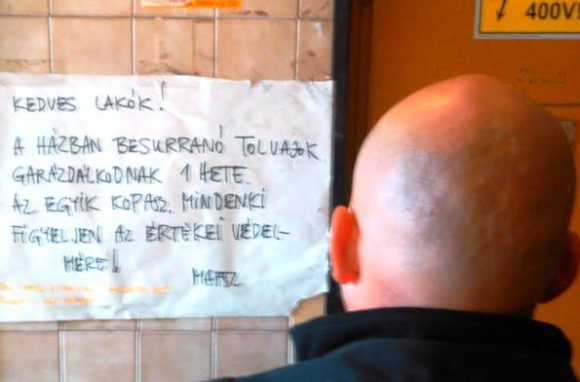 400V!
KEDVES LAKÓK!
A HÁZBAN BESURRANÓ TOLVAJOK
GARÁZDÁLKODNAK 1 HETE.
AZ EGYIK KOPASZ. MINDENKI
FIGYELJEN AZ ÉRTÉKEI VÉDEL-
MÉRE!